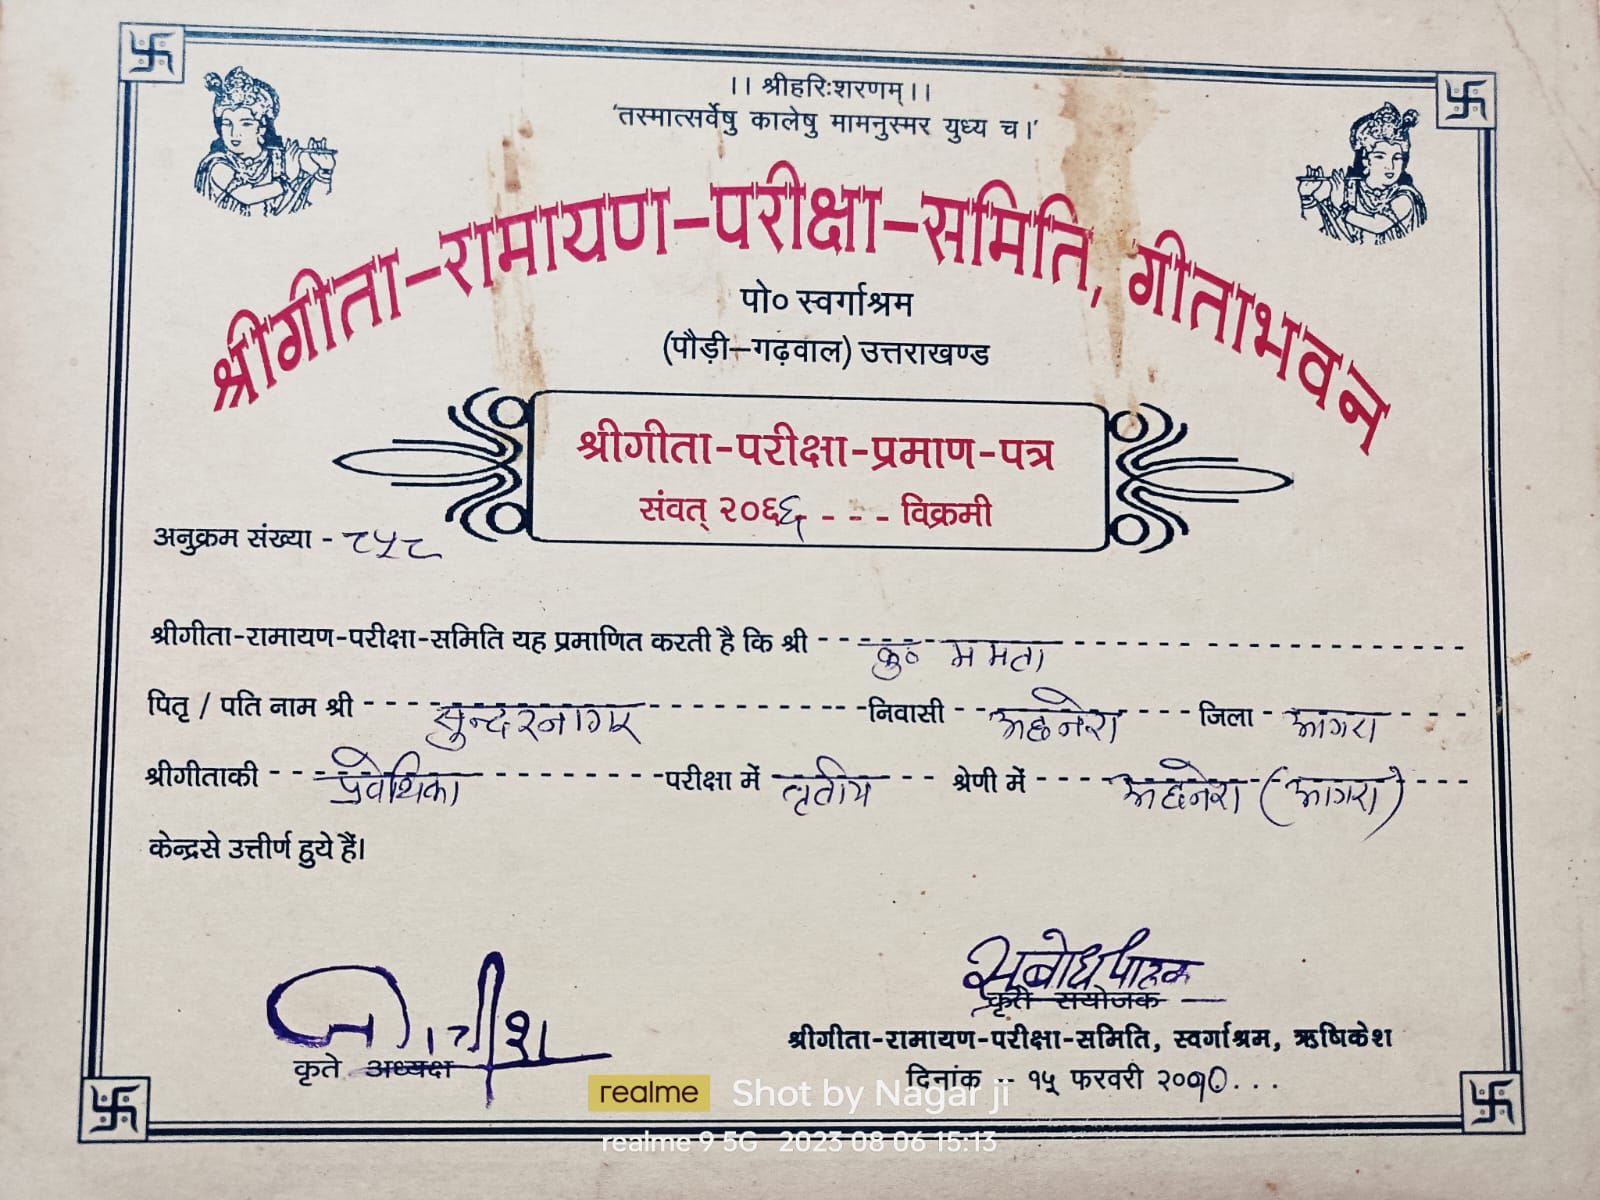 ।। श्रीहरिःशरणम् ।।
'तस्मात्सर्वेषु कालेषु मामनुस्मर युध्य च।'
श्रीगीता-रामायण-परीक्षा-समिति, गीताभवन
पो० स्वर्गाश्रम
(पौड़ी-गढ़वाल) उत्तराखण्ड
श्रीगीता-परीक्षा-प्रमाण-पत्र
संवत् २०६६ - - - विक्रमी
अनुक्रम संख्या - ८५८
श्रीगीता-रामायण-परीक्षा-समिति यह प्रमाणित करती है कि श्री कु० ममता
पितृ / पति नाम श्री सुन्दरनागर निवासी अछनेरा जिला आगरा
श्रीगीताकी प्रवेशिका परीक्षा में तृतीय श्रेणी में अछनेरा (आगरा)
केन्द्रसे उत्तीर्ण हुये हैं।
सुबोध पाठक
कृते संयोजक
कृते अध्यक्ष
श्रीगीता-रामायण-परीक्षा-समिति, स्वर्गाश्रम, ऋषिकेश
दिनांक - १५ फरवरी २०१०...
realme Shot by Nagar ji
realme 9 5G 2023 08 06 15:13